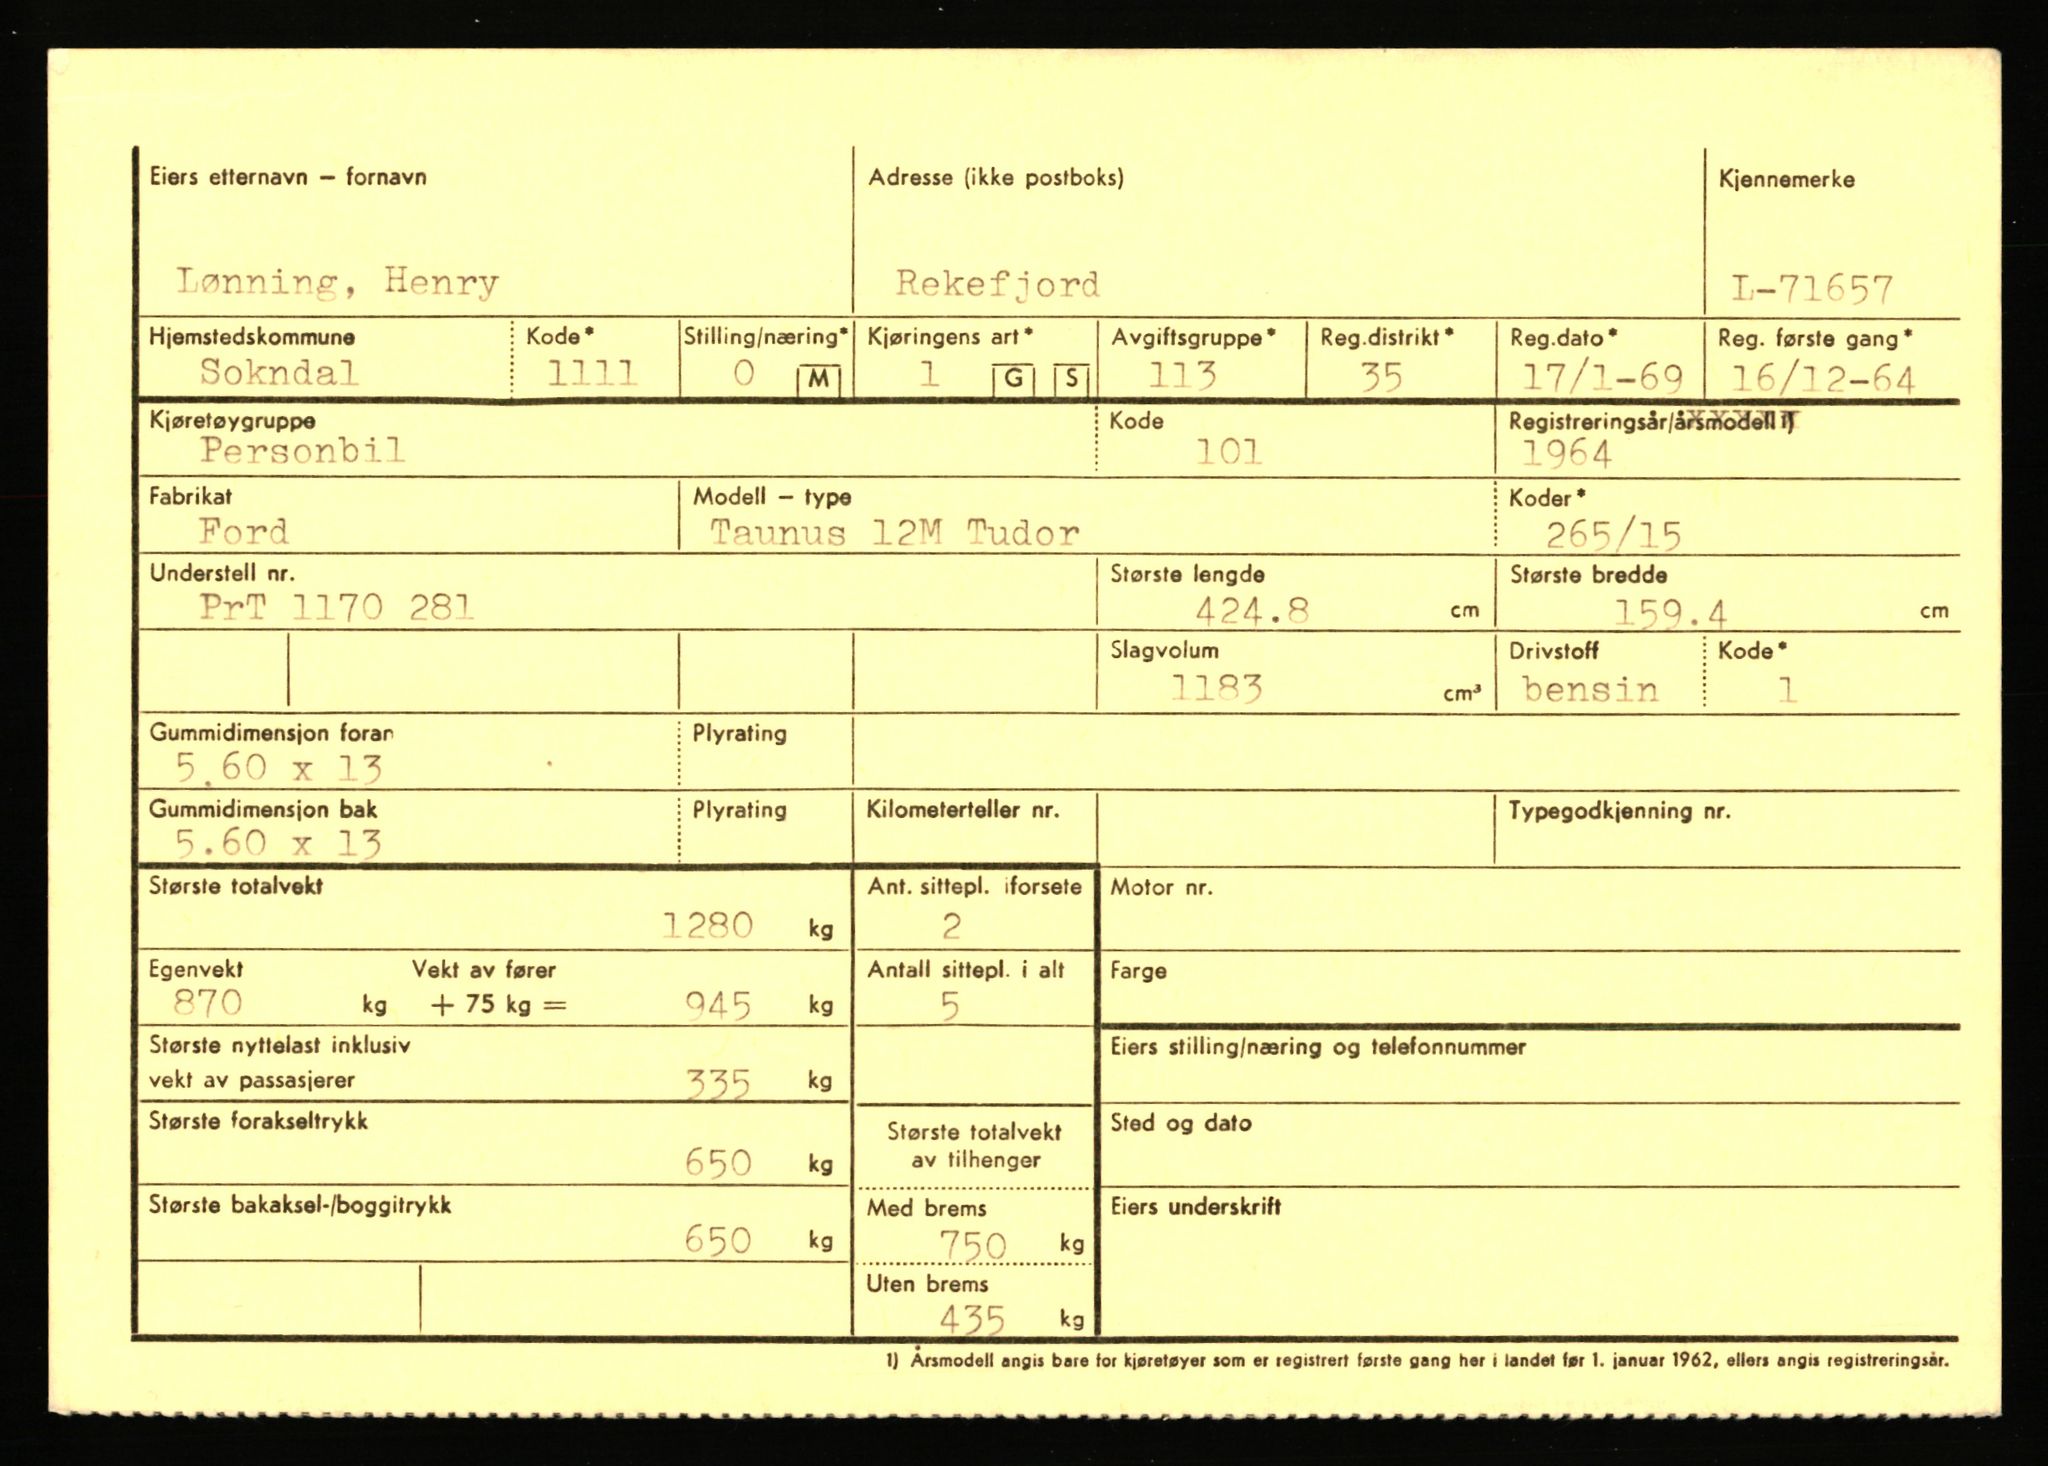 Eiers etternavn – fornavn Adresse (ikke postboks) Kjennemerke
Lønning, Henry Rekefjord L-71657
Hjemstedskommune Kode* Stilling/næring* Kjøringens art* Avgiftsgruppe* Reg.distrikt* Reg.dato* Reg. første gang*
Sokndal 1111 0 M 1 G S 113 35 17/1-69 16/12-64
Kjøretøygruppe Kode Registreringsår/årsmodell 1)
Personbil 101 1964
Fabrikat Modell – type Koder*
Ford Taunus 12M Tudor 265/15
Understell nr. Største lengde Største bredde
PrT 1170 281 424.8 cm 159.4 cm
Slagvolum Drivstoff Kode*
1183 cm³ bensin 1
Gummidimensjon foran Plyrating
5.60 x 13
Gummidimensjon bak Plyrating Kilometerteller nr. Typegodkjenning nr.
5.60 x 13
Største totalvekt Ant. sittepl. iforsete Motor nr.
1280 kg 2
Egenvekt Vekt av fører Antall sittepl. i alt Farge
870 kg + 75 kg = 945 kg 5
Største nyttelast inklusiv Eiers stilling/næring og telefonnummer
vekt av passasjerer 335 kg
Største forakseltrykk Største totalvekt Sted og dato
av tilhenger
650 kg
Største bakaksel-/boggitrykk Med brems Eiers underskrift
650 kg 750 kg
Uten brems
435 kg
1) Årsmodell angis bare for kjøretøyer som er registrert første gang her i landet før 1. januar 1962, ellers angis registreringsår.